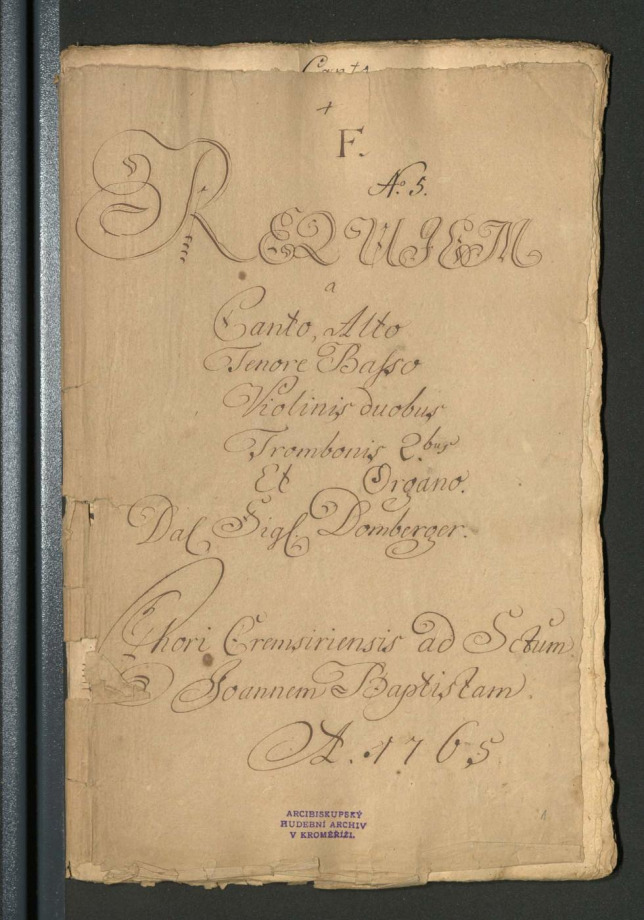 Canto
+
F.
No. 5.
REQUIEM
a
Canto, Alto
Tenore Basso
Violinis duobus
Trombonis 2.bus
Et Organo.
Dal Sigl. Domberger.
Chori Cremsiriensis ad Sctum.
Joannem Baptistam.
A. 1765
ARCIBISKUPSKÝ
HUDEBNÍ ARCHIV
V KROMĚŘÍŽI.